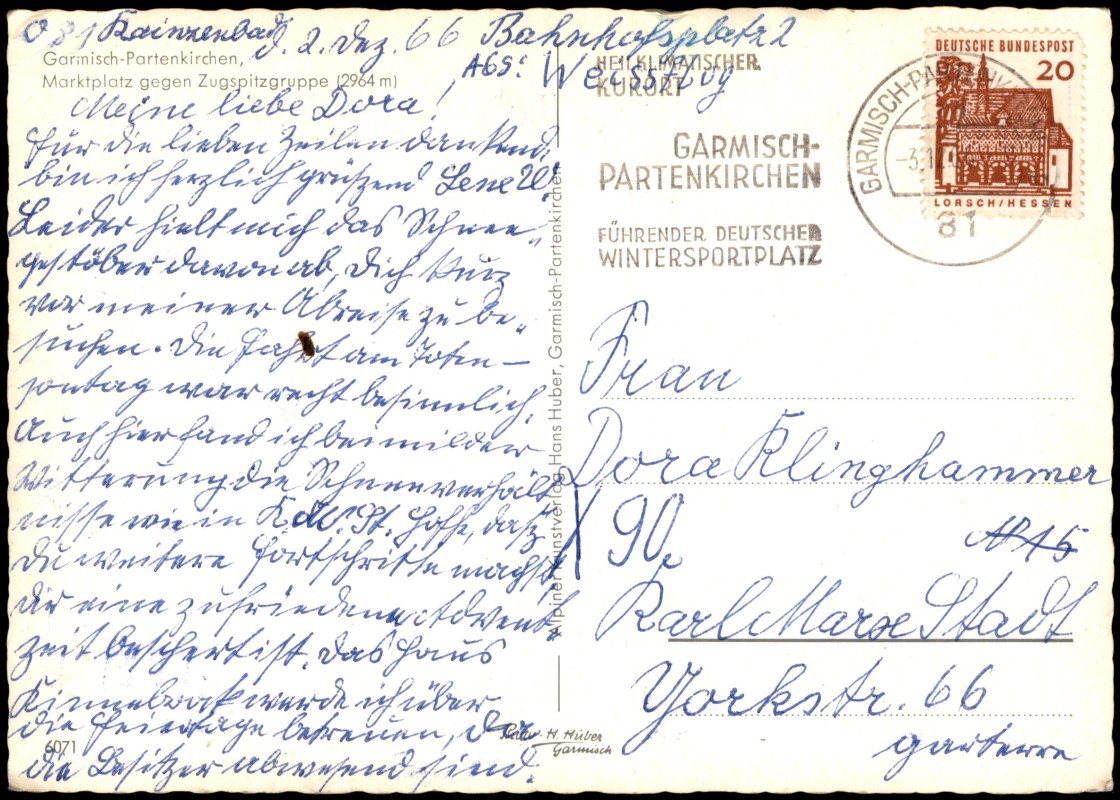 081 Kainzenbad, d. 2. Dez. 66 Bahnhofsplatz 2
Abs: Weissflog
Garmisch-Partenkirchen,
Marktplatz gegen Zugspitzgruppe (2964 m)
Meine liebe Dora!
Für die lieben Zeilen dankend,
bin ich herzlich grüßend Lene W.
Leider hielt mich das Schnee-
gestöber davon ab, Dich kurz
vor meiner Abreise zu be-
suchen. Die Fahrt am Toten-
sontag war recht besinnlich.
Auch hier fand ich bei milder
Witterung die Schneeverhält
nisse wie in K. M. St. Hoffe, dasz
Du weitere Fortschritte machst,
Dir eine zufriedene Advent
zeit beschert ist. Das Haus
werde ich über
die Feiertage betreuen, da
die Besitzer abwesend sind.
6071
H. Huber
Garmisch
Alpiner Kunstverlag Hans Huber, Garmisch-Partenkirchen
HEILKLIMATISCHER
KURORT
GARMISCH-
PARTENKIRCHEN
FÜHRENDER DEUTSCHER
WINTERSPORTPLATZ
GARMISCH-PARTENKIRCHEN
-3.12.
81
DEUTSCHE BUNDESPOST
20
LORSCH/HESSEN
Frau
Dora Klinghammer
90
Karl Marx Stadt
Yorkstr. 66
parterre